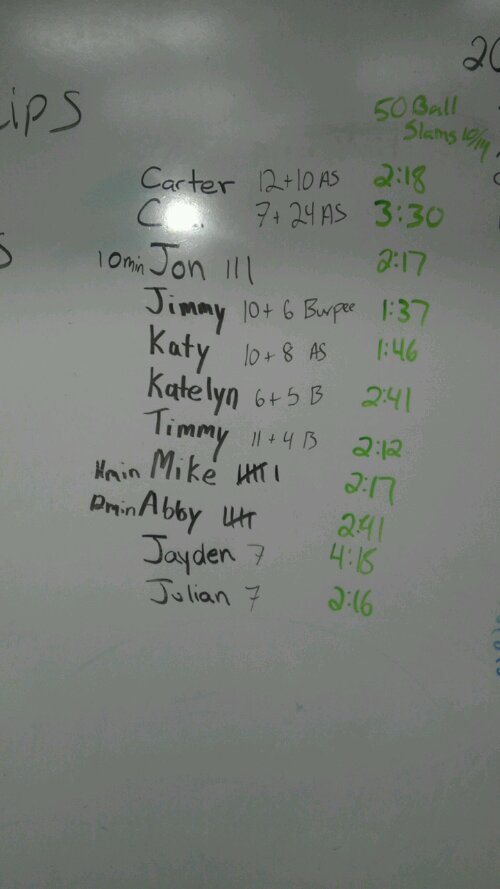 20
ips
50 Ball
Slams 10/14
Carter 12+10 AS 2:18
7+24 AS 3:30
s
10min Jon III 2:17
Jimmy 10+6 Burpee 1:37
Katy 10+8 AS 1:46
Katelyn 6+5 B 2:41
Timmy 11+4 B 2:12
Mike 2:17
Abby 2:41
Jayden 7 4:18
Julian 7 2:16